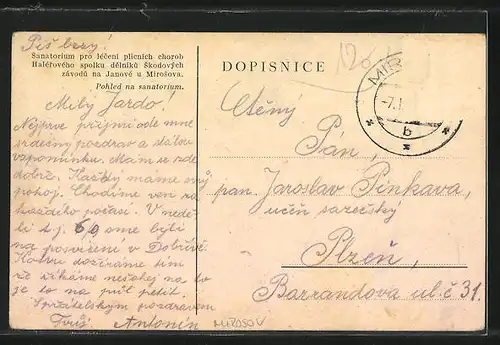 Piš brzy!
Sanatorium pro léčení plicních chorob
Haléřového spolku dělníků Škodových
závodů na Janově u Mirošova.
Pohled na sanatorium.
Milý Jardo!
Nejprve přijmi ode mne
srdečný pozdrav a
vzpomínku. Mám se zde
dobře. Každý máme svůj
pokoj. Chodíme ven za
každého počasí. V nedě
li t.j. 6/9 sme byli
na posvícení v Dobřívě.
je to na půl
S přátelským pozdravem
Tvůj Antonín
DOPISNICE
MIR
-7.I
b
Ctěný
Pán,
pan Jaroslav Pinkava,
učeň
Plzeň,
Barrandova ul. č 31.
MIROŠOV